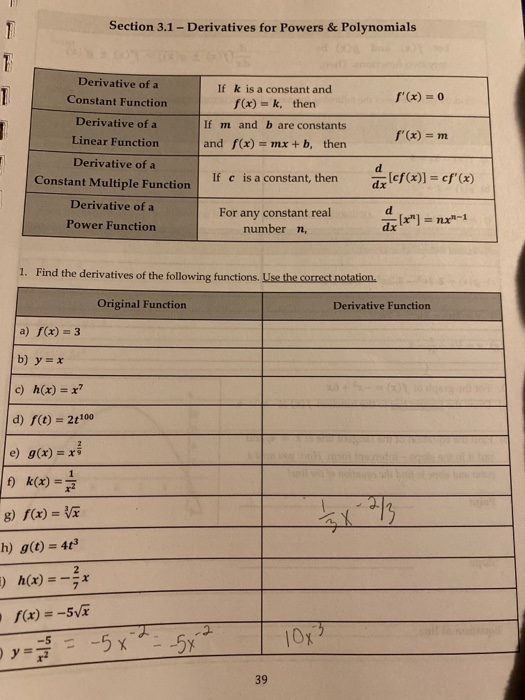 Section 3.1 – Derivatives for Powers & Polynomials
Derivative of a
Constant Function
If k is a constant and
f(x) = k, then
f′(x) = 0
Derivative of a
Linear Function
If m and b are constants
and f(x) = mx + b, then
f′(x) = m
Derivative of a
Constant Multiple Function
If c is a constant, then
d/dx [cf(x)] = cf′(x)
Derivative of a
Power Function
For any constant real
number n,
d/dx [xⁿ] = nxⁿ⁻¹
1. Find the derivatives of the following functions. Use the correct notation.
Original Function
Derivative Function
a) f(x) = 3
b) y = x
c) h(x) = x⁷
d) f(t) = 2t¹⁰⁰
e) g(x) = x^(2/9)
f) k(x) = 1/x²
g) f(x) = ∛x
1/3 x^(-2/3)
h) g(t) = 4t³
) h(x) = −2/7 x
f(x) = −5√x
) y = −5/x² = -5x⁻² = -5x⁻²
10x⁻³
39